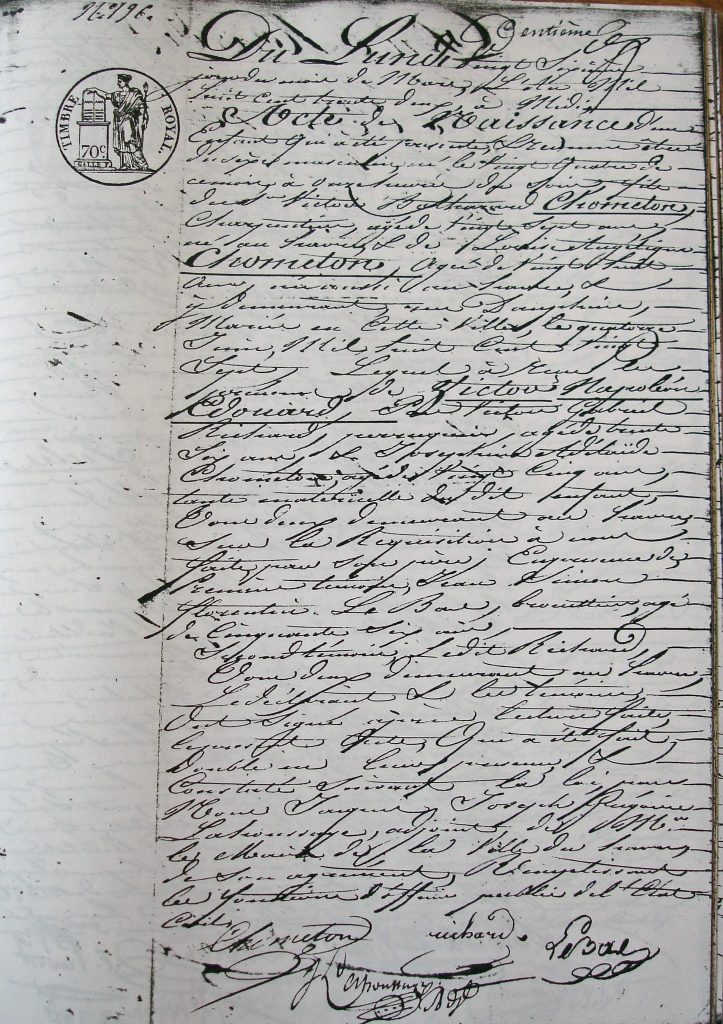 N.° 196.
Du Lundi Vingt Sixième
jour du mois de Mars, L'an Mil
huit Cent trente deux, à Midi
TIMBRE ROYAL.
70c
Acte de Naissance d'un
Enfant qui a été présenté, et reconnu être
du sexe masculin, né le Vingt quatre de
ce mois, à onze heures du Soir, fils
de Victor Chometon,
Charpentier, agé de Vingt Sept ans,
né au havre, & de Louise Angélique
Chometon, agée de Vingt huit
ans, née aussi au havre, &
y demeurant rue Dauphine,
Mariés en Cette Ville, le quatorze
Juin, Mil huit Cent Vingt
Sept. Lequel a Reçu les
prénoms de Victor Napoléon
Edouard, Par Victor Gabriel
Richard, perruquier, agé de trente
Six ans, & Joséphine Adélaïde
Chometon, agée de Vingt Cinq ans,
tante maternelle du dit enfant,
Tous deux demeurant au havre,
Sur la Réquisition à nous
faite par Son père, En présence de
Premier témoin, Jean Simon
Florentin Le Bas, brouettier, agé
de Cinquante Six ans,
Second témoin, Ledit Richard,
Tous deux demeurant au havre,
Le déclarant & les témoins
Ont Signé après lecture faite,
le présent Acte, Qui a été fait
Double en leur présence, &
Constaté Suivant la loi, par
Nous Jacques Joseph Grégoire
Lahoussaye, adjoint de M.r
le Maire de la Ville du havre,
de Son agrément, Remplissant
les fonctions d'officier public de l'Etat
Civil.
Chometon richard. LeBas
Lahoussaye Adjt